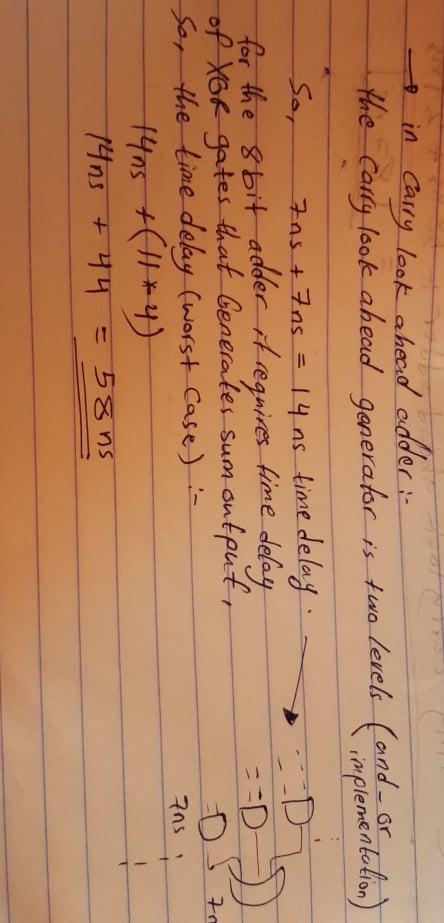 → in carry look ahead adder:-
the carry look ahead generator is two levels (and-or
implementation)
So, 7ns + 7ns = 14 ns time delay.
for the 8 bit adder it requires time delay
of XOR gates that Generates sum output,
So, the time delay (worst case) :-
14ns + (11*4)
14ns + 44 = 58ns
7ns